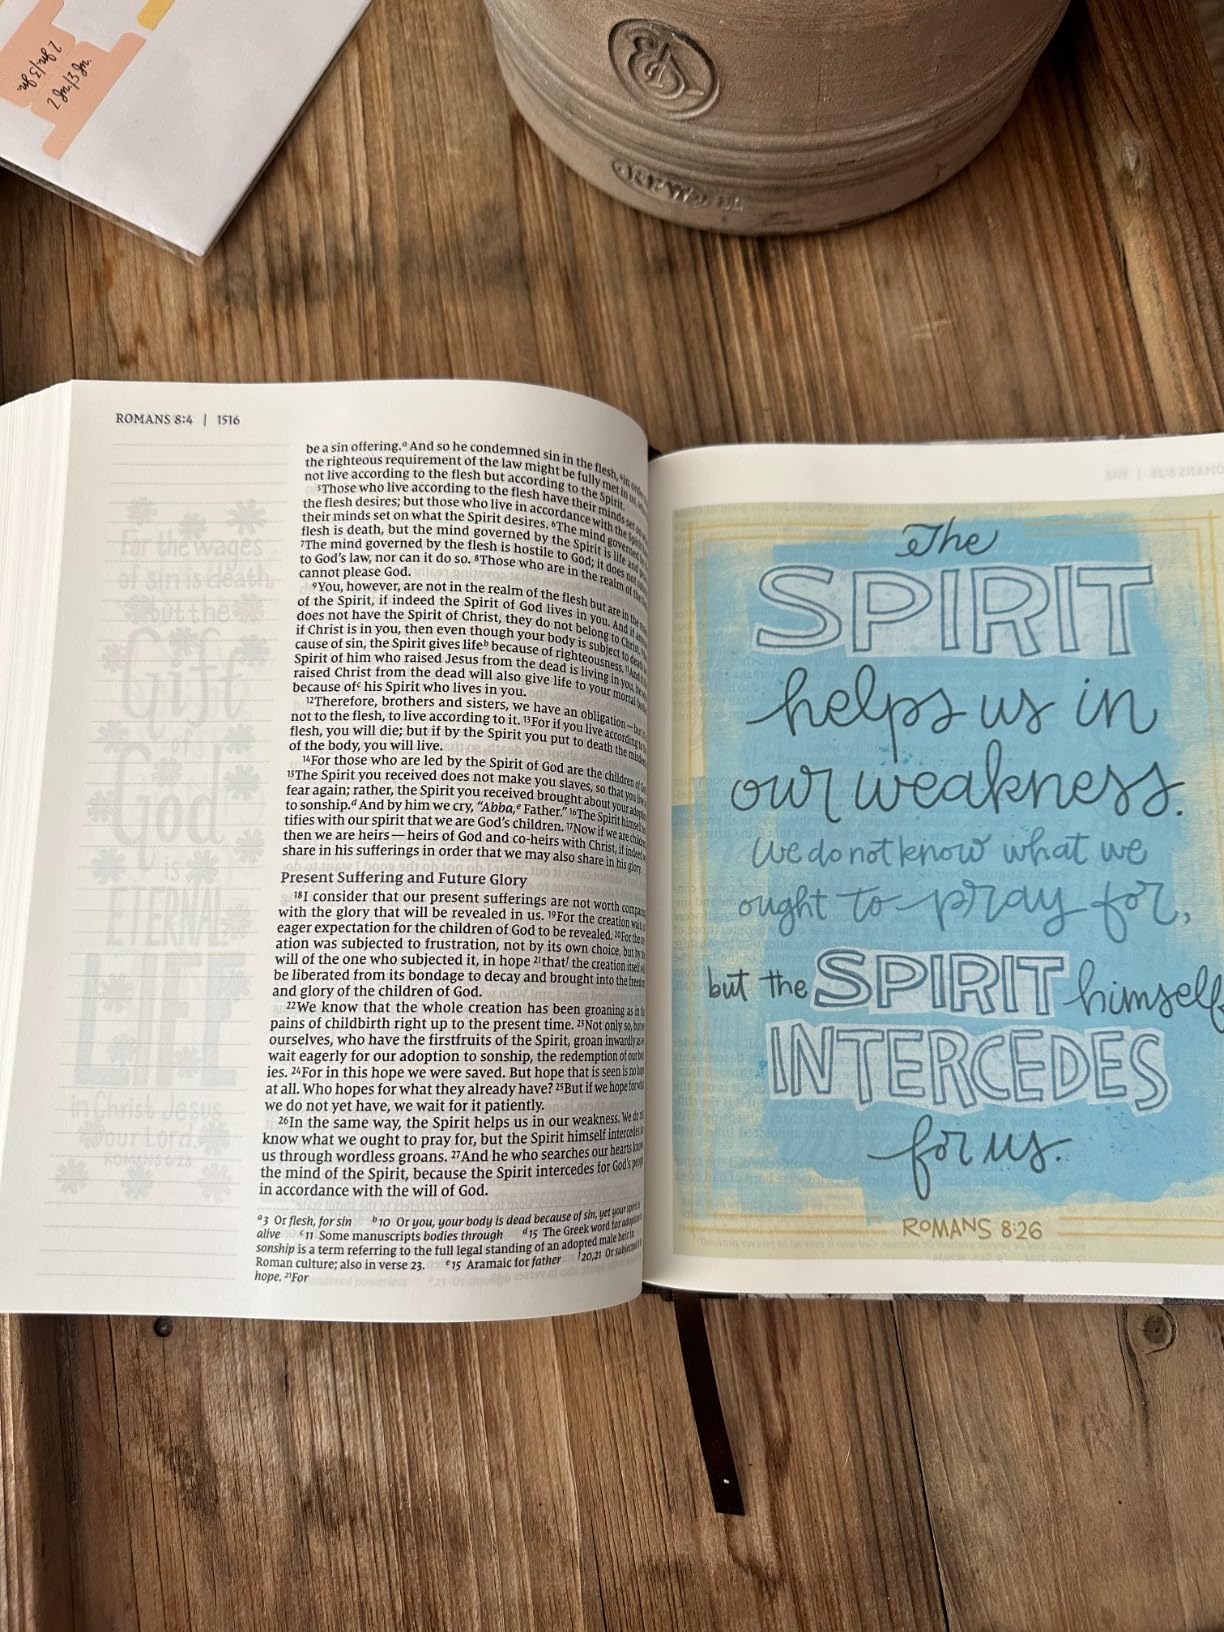 2 Jn/3 Jn.
2 Jn/3 Jn.
ROMANS 8:4 | 1516
be a sin offering.a And so he condemned sin in the flesh, 4in
the righteous requirement of the law might be fully met in us,
not live according to the flesh but according to the Spirit.
5Those who live according to the flesh have their minds set on
the flesh desires; but those who live in accordance with the
their minds set on what the Spirit desires. 6The mind governed
flesh is death, but the mind governed by the Spirit is life
7The mind governed by the flesh is hostile to God; it does not
to God's law, nor can it do so. 8Those who are in the realm of the
cannot please God.
9You, however, are not in the realm of the flesh but are in the
of the Spirit, if indeed the Spirit of God lives in you. And if
does not have the Spirit of Christ, they do not belong to Christ.
if Christ is in you, then even though your body is subject to
cause of sin, the Spirit gives lifeb because of righteousness. 11And
Spirit of him who raised Jesus from the dead is living in you,
raised Christ from the dead will also give life to your mortal
because ofc his Spirit who lives in you.
12Therefore, brothers and sisters, we have an obligation—but
not to the flesh, to live according to it. 13For if you live according
flesh, you will die; but if by the Spirit you put to death the
of the body, you will live.
14For those who are led by the Spirit of God are the children of
15The Spirit you received does not make you slaves, so that you live
fear again; rather, the Spirit you received brought about your
to sonship.d And by him we cry, "Abba,e Father." 16The Spirit himself
tifies with our spirit that we are God's children. 17Now if we are
then we are heirs—heirs of God and co-heirs with Christ, if indeed
share in his sufferings in order that we may also share in his glory.
Present Suffering and Future Glory
18I consider that our present sufferings are not worth
with the glory that will be revealed in us. 19For the creation
eager expectation for the children of God to be revealed. 20For the
ation was subjected to frustration, not by its own choice, but by
will of the one who subjected it, in hope 21thatf the creation itself
be liberated from its bondage to decay and brought into the
and glory of the children of God.
22We know that the whole creation has been groaning as in
pains of childbirth right up to the present time. 23Not only so,
ourselves, who have the firstfruits of the Spirit, groan inwardly as
wait eagerly for our adoption to sonship, the redemption of our
ies. 24For in this hope we were saved. But hope that is seen is no
at all. Who hopes for what they already have? 25But if we hope for
we do not yet have, we wait for it patiently.
26In the same way, the Spirit helps us in our weakness. We do
know what we ought to pray for, but the Spirit himself intercedes
us through wordless groans. 27And he who searches our hearts
the mind of the Spirit, because the Spirit intercedes for God's
in accordance with the will of God.
a3 Or flesh, for sin b10 Or you, your body is dead because of sin, yet your
alive c11 Some manuscripts bodies through d15 The Greek word for
sonship is a term referring to the full legal standing of an adopted male heir in
Roman culture; also in verse 23. e15 Aramaic for father f20,21 Or
hope. 21For
For the wages
of sin is death,
but the
Gift
of
God
is
ETERNAL
LIFE
in Christ Jesus
our Lord.
ROMANS 6:23
The
SPIRIT
helps us in
our weakness.
We do not know what we
ought to pray for,
but the SPIRIT himself
INTERCEDES
for us.
ROMANS 8:26